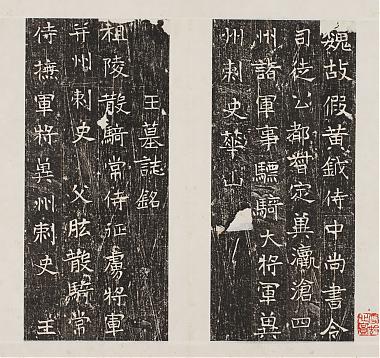 魏故假黃鉞侍中尚書令
司徒公都督定冀瀛滄四
州諸軍事驃騎大將軍冀
州刺史華山
王墓誌銘
祖陵散騎常侍征虜將軍
并州刺史 父肱散騎常
侍撫軍將冀州刺史 王